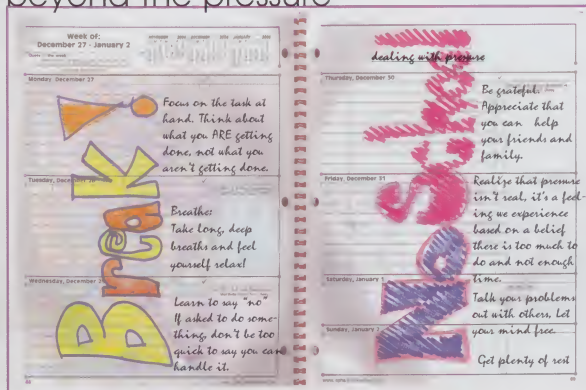 beyond the pressure
Week of:
December 27 - January 2
Monday, December 27
Focus on the task at
hand. Think about
what you ARE getting
done, not what you
aren't getting done.
Tuesday, December 28
Breathe:
Take long, deep
breaths and feel
yourself relax!
Wednesday, December 29
Learn to say "no"
If asked to do some-
thing, don't be too
quick to say you can
handle it.
Break!
dealing with pressure
Thursday, December 30
Be grateful:
Appreciate that
you can help
your friends and
family.
Friday, December 31
Realize that pressure
isn't real, it's a feel-
ing we experience
based on a belief
there is too much to
do and not enough
time.
Saturday, January 1
Talk your problems
out with others, Let
your mind free.
Sunday, January 2
Get plenty of rest
No School!